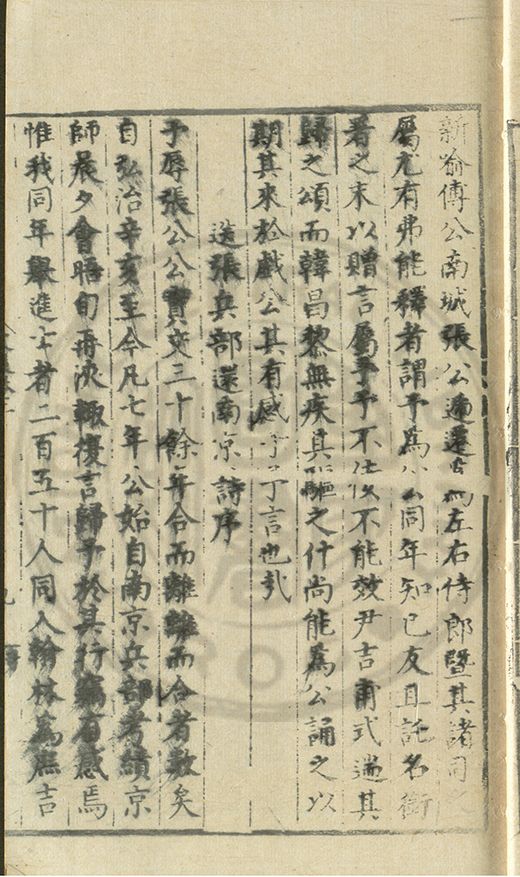 新喻傅公南城張公遞遷為左右侍郎暨其諸同
屬尤有弗能釋者謂予為公同年知已友且託名銜
署之末以贈言屬予予不佞不能效尹吉甫式遄其
歸之頌而韓昌黎無疾其驅之什尚能為公誦之以
期其來於戲公其有感于予言也㢤
送張兵部還南京詩序
予辱張公公實交三十餘年合而離離而合者數矣
自弘治辛亥至今凡七年公始自南京兵部考績京
師晨夕會晤旬再浹輒復言歸予於其行竊有感焉
惟我同年舉進士者二百五十人同入翰林為庶吉